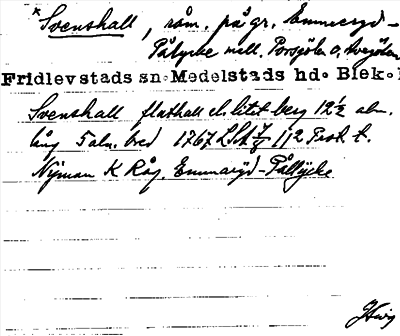 * Svenshall, råm. på gr. Emmaryd-
Påltycke mell. Porsgölen o. Svegölen
Fridlevstads sn. Medelstads hd. Blek.
Svenshall flathall el. litet berg 12 1/2 aln.
lång 5 aln. bred 1767 LSA 112 Prot. t.
Nyman K Råg. Emmaryd-Påltycke